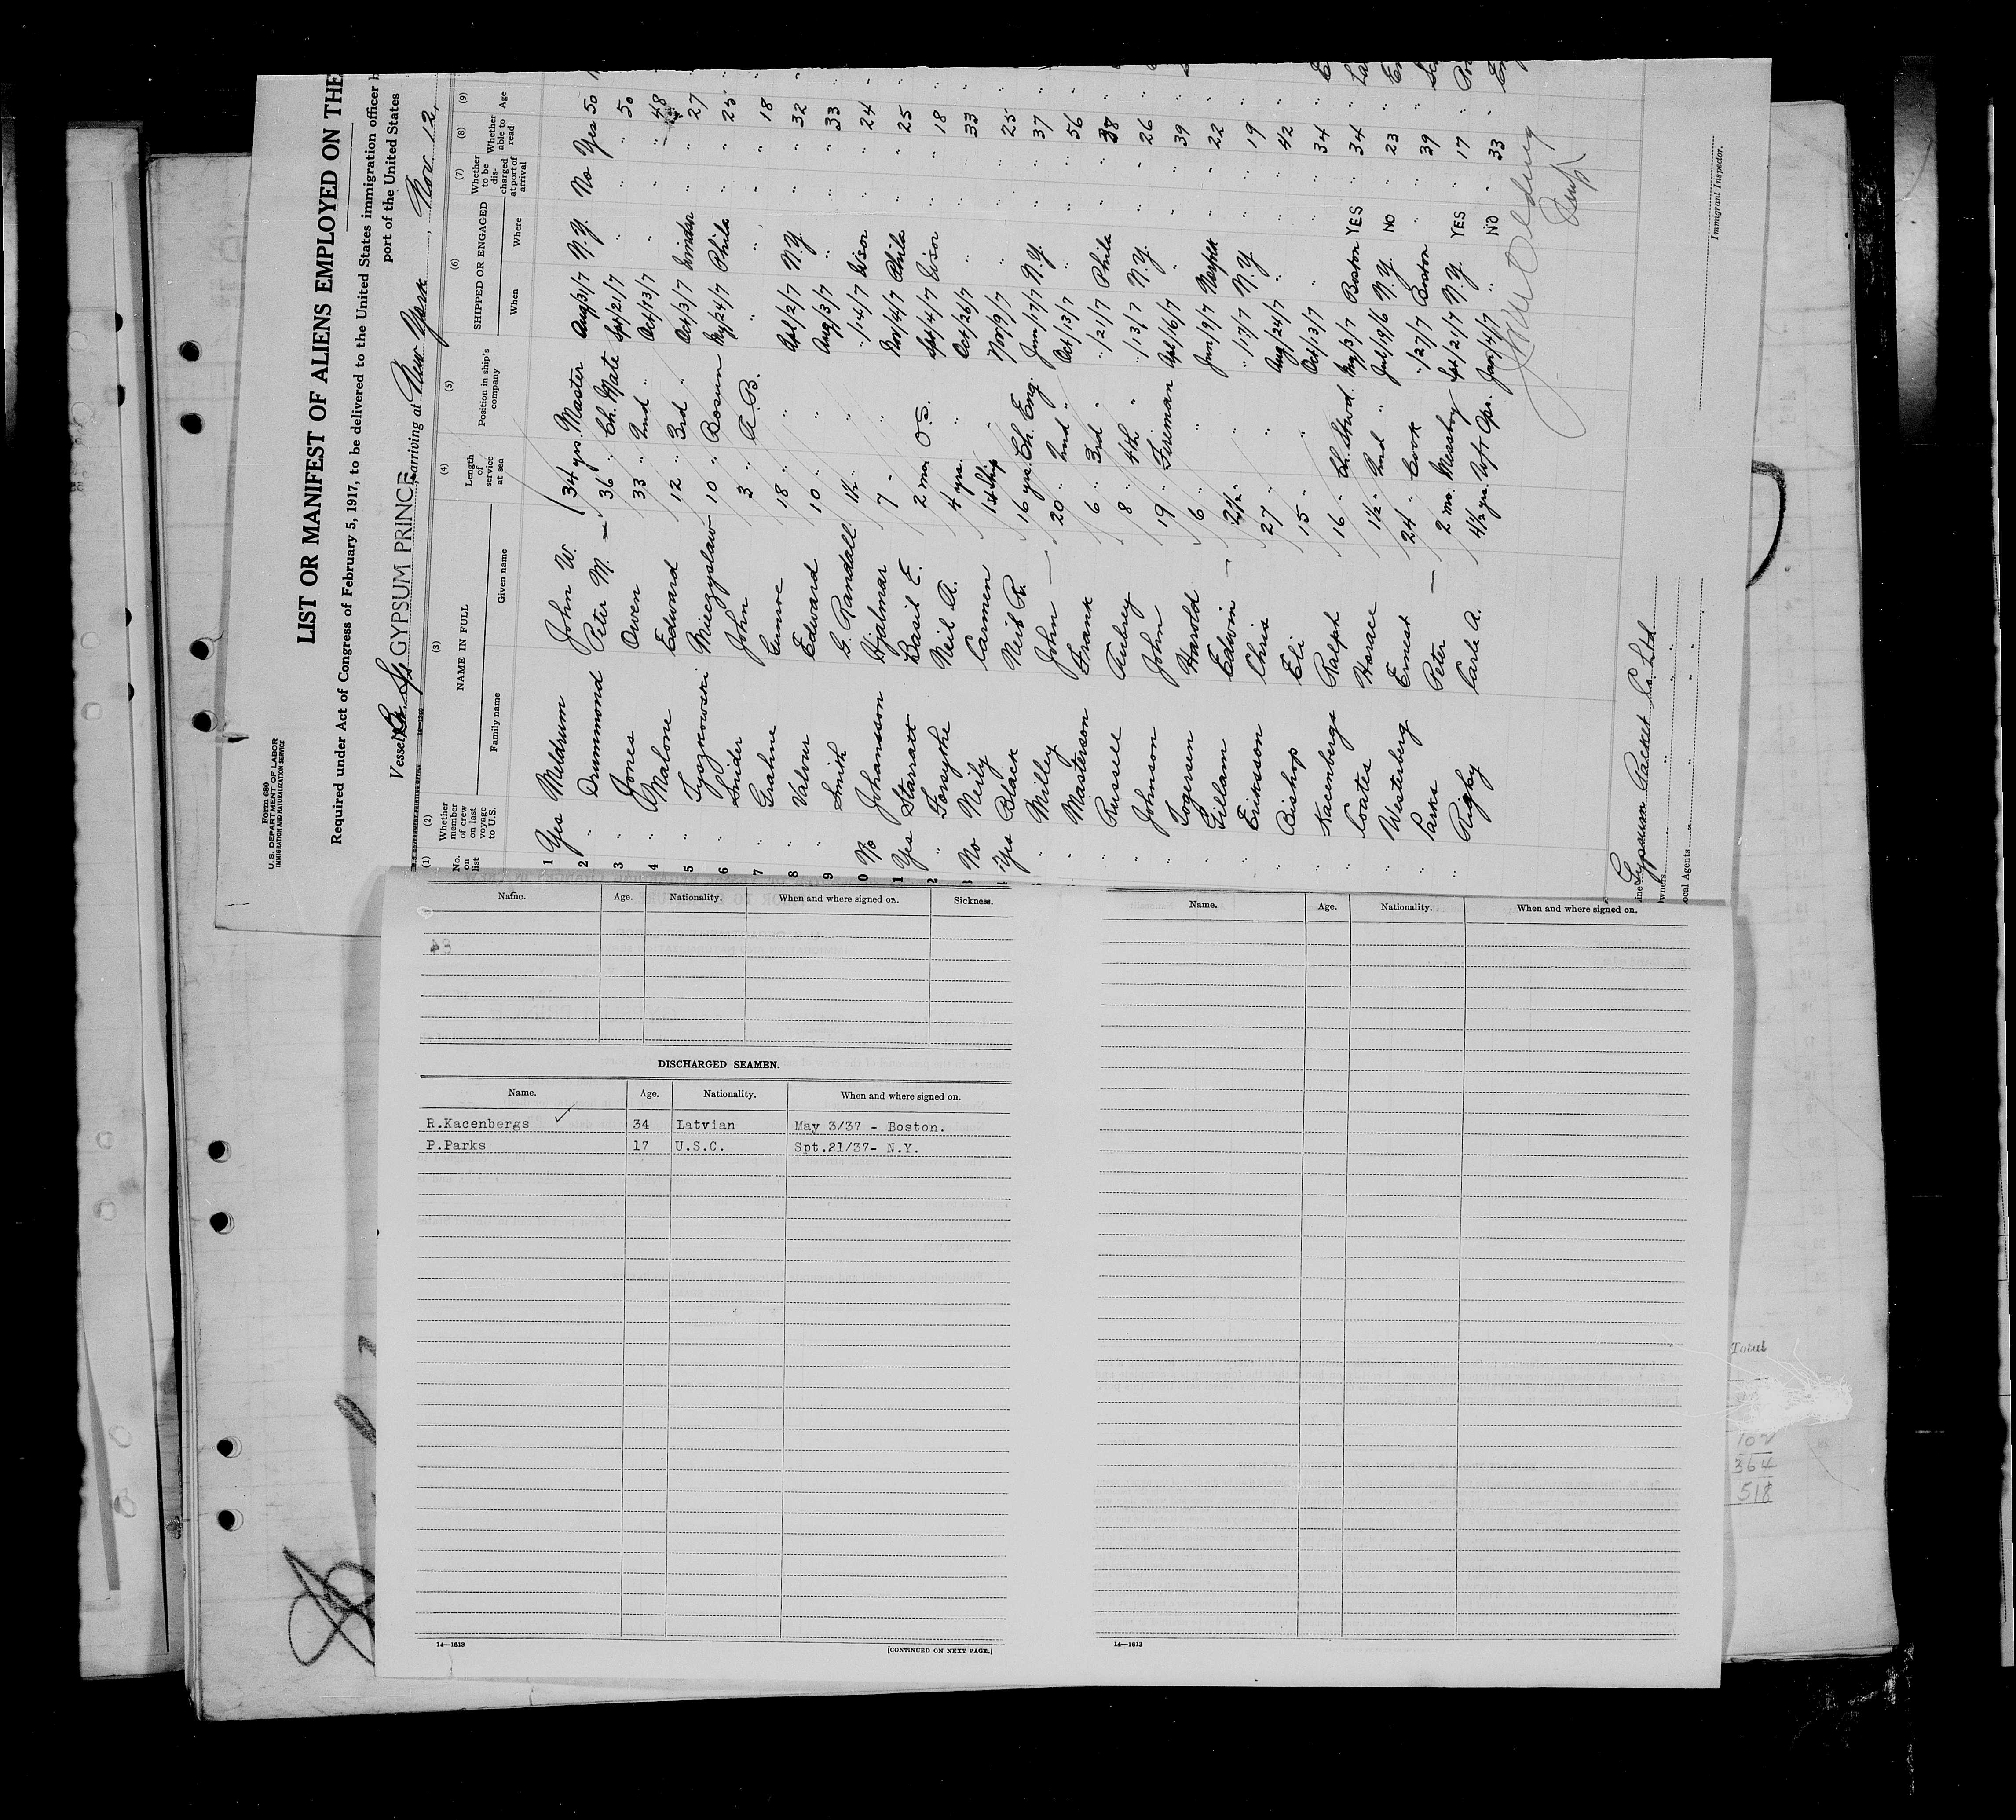 Form 680
U. S. DEPARTMENT OF LABOR
IMMIGRATION AND NATURALIZATION SERVICE
LIST OR MANIFEST OF ALIENS EMPLOYED ON THE
Required under Act of Congress of February 5, 1917, to be delivered to the United States immigration officer
port of the United States
Vessel Br. GYPSUM PRINCE, arriving at New York, Nov. 12,
(1) (2) (3) (4) (5) (6) (7) (8) (9)
No. on list Whether member of crew on last voyage to U.S. NAME IN FULL Length of service at sea Position in ship's company SHIPPED OR ENGAGED Whether to be discharged at port of arrival Whether able to read Age
Family name Given name When Where
1 Yes Mildrum John W. 34 yrs. Master Aug/31/7 N.Y. No Yes 50
2 " Drummond Peter M. — 36 " Ch. Mate Spt/21/7 " " " 50
3 " Jones Owen 33 " 2nd " Oct/13/7 " " " 48
4 " Malone Edward 12 " 3rd " Oct/3/7 Windsor " " 27
5 " Mieczyslaw 10 " Bosun My/24/7 Phila " " 25
6 " Snider John 3 " A.B. " " " " 18
7 " Grahne 18 " " Apl/2/7 N.Y. " " 32
8 " Edward 10 " " Aug/3/7 " " " 33
9 " Smith G. Randall 1½ " " "/14/7 " " 24
0 No Johansson Hjalmar 7 " " Nov/4/7 Phila " " 25
1 Yes Starratt Basil E. 2 mo. O.S. Spt/4/7 " " 18
2 " Forsythe Neil A. 4 yrs. " Oct/26/7 " " " 33
3 No Neily Carmen 1st Ship " Nov/9/7 " " " 25
Yes Black Neil R. 16 yrs. Ch. Eng. Jun/17/7 N.Y. " " 37
" Milley John — 20 " 2nd " Oct/13/7 " " " 56
" Masterson Frank 6 " 3rd " "/21/7 Phila " " 38
" Russell Aubrey 8 " 4th " "/13/7 N.Y. " " 26
" Johnson John 19 " Fireman Apl/16/7 " " " 39
" Togersen Harold 6 " " Jun/9/7 Norfolk " " 22
" Gillam Edwin — 2½ " " "/17/7 N.Y. " " 19
" Eriksson Chris 27 " " Aug/24/7 " " " 42
" Bishop Eli 15 " " Oct/13/7 " " " 34
" Kacenbergs Ralph 16 " Ch. Stwd. My/3/7 Boston YES " 34
" Coates Horace 1½ " 2nd " Jul/19/6 N.Y. NO " 23
" Westerberg Ernest 24 " Cook "/27/7 Boston " " 39
" Parks Peter — 2 mo. Messboy Spt/21/7 N.Y. YES " 17
" Rigby Carl A. 4½ yrs. Jan/4/7 " NO " 33
Immigrant Inspector.
Gypsum Packet Co. Ltd.
Owners " " "
Local Agents " " "
Name. Age. Nationality. When and where signed on. Sickness.
DISCHARGED SEAMEN.
Name. Age. Nationality. When and where signed on.
R.Kacenbergs 34 Latvian May 3/37 - Boston.
P.Parks 17 U.S.C. Spt.21/37- N.Y.
14—1613 [CONTINUED ON NEXT PAGE.]
Name. Age. Nationality. When and where signed on.
14—1613
Total
102
364
518